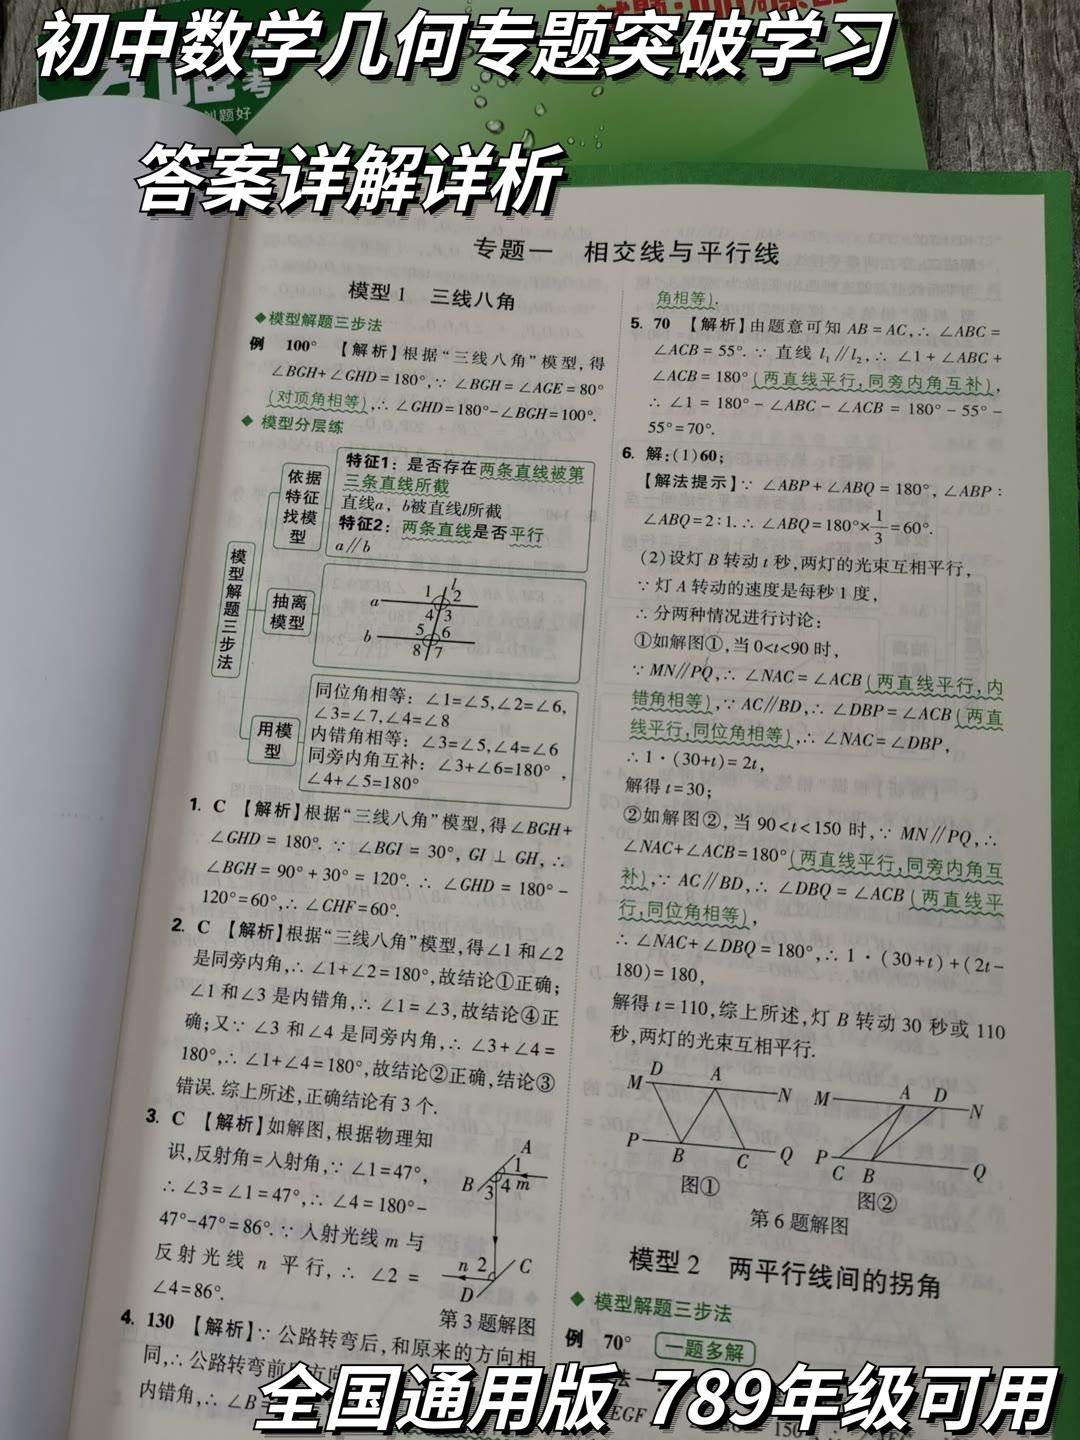 初中数学几何专题突破学习
创题好
考
答案详解详析
专题一 相交线与平行线
模型1 三线八角
◆模型解题三步法
例 100° 【解析】根据“三线八角”模型,得
∠BGH+∠GHD=180°,∵ ∠BGH=∠AGE=80°
(对顶角相等),∴ ∠GHD=180°-∠BGH=100°.
◆ 模型分层练
模型解题三步法
依据
特征
找模
型
特征1：是否存在两条直线被第
三条直线所截
直线a，b被直线l所截
特征2：两条直线是否平行
a∥b
抽离
模型
l
a 1 2
4 3
b 5 6
8 7
用模
型
同位角相等：∠1=∠5,∠2=∠6,
∠3=∠7,∠4=∠8
内错角相等：∠3=∠5,∠4=∠6
同旁内角互补：∠3+∠6=180°，
∠4+∠5=180°
1. C 【解析】根据“三线八角”模型,得∠BGH+
∠GHD = 180°. ∵ ∠BGI = 30°, GI ⊥ GH, ∴
∠BGH = 90°+30° = 120°. ∴ ∠GHD = 180°-
120°=60°,∴ ∠CHF=60°.
2. C 【解析】根据“三线八角”模型,得∠1和∠2
是同旁内角,∴ ∠1+∠2=180°,故结论①正确;
∠1和∠3是内错角,∴ ∠1=∠3,故结论④正
确;又∵ ∠3和∠4是同旁内角,∴ ∠3+∠4=
180°,∴ ∠1+∠4=180°,故结论②正确,结论③
错误. 综上所述,正确结论有3个.
3. C 【解析】如解图,根据物理知
识,反射角=入射角,∵ ∠1=47°,
∴ ∠3=∠1=47°,∴ ∠4=180°-
47°-47°=86°.∵ 入射光线m与
反射光线n平行,∴ ∠2=
∠4=86°.
A
1
B 3 4 m
n 2 C
D
第3题解图
4. 130 【解析】∵ 公路转弯后,和原来的方向相
同,∴ 公路转弯前
内错角,∴ ∠B=
角相等).
5. 70 【解析】由题意可知AB=AC,∴ ∠ABC=
∠ACB=55°. ∵ 直线l₁∥l₂,∴ ∠1+∠ABC+
∠ACB=180°(两直线平行,同旁内角互补),
∴ ∠1=180°-∠ABC-∠ACB=180°-55°-
55°=70°.
6. 解:(1)60;
【解法提示】∵ ∠ABP+∠ABQ=180°,∠ABP:
∠ABQ=2:1.∴ ∠ABQ=180°×1/3=60°.
(2)设灯B转动t秒,两灯的光束互相平行,
∵ 灯A转动的速度是每秒1度,
∴ 分两种情况进行讨论:
①如解图①,当0<t<90时,
∵ MN∥PQ,∴ ∠NAC=∠ACB(两直线平行,内
错角相等),∵ AC∥BD,∴ ∠DBP=∠ACB(两直
线平行,同位角相等),∴ ∠NAC=∠DBP,
∴ 1·(30+t)=2t,
解得t=30;
②如解图②,当90<t<150时,∵ MN∥PQ,∴
∠NAC+∠ACB=180°(两直线平行,同旁内角互
补),∵ AC∥BD,∴ ∠DBQ=∠ACB(两直线平
行,同位角相等),
∴ ∠NAC+∠DBQ=180°,∴ 1·(30+t)+(2t-
180)=180,
解得t=110,综上所述,灯B转动30秒或110
秒,两灯的光束互相平行.
M D A N
P B C Q
图①
M A D N
P C B Q
图②
第6题解图
模型2 两平行线间的拐角
◆ 模型解题三步法
例 70° 一题多解
法一
EGF
150
全国通用版 789年级可用